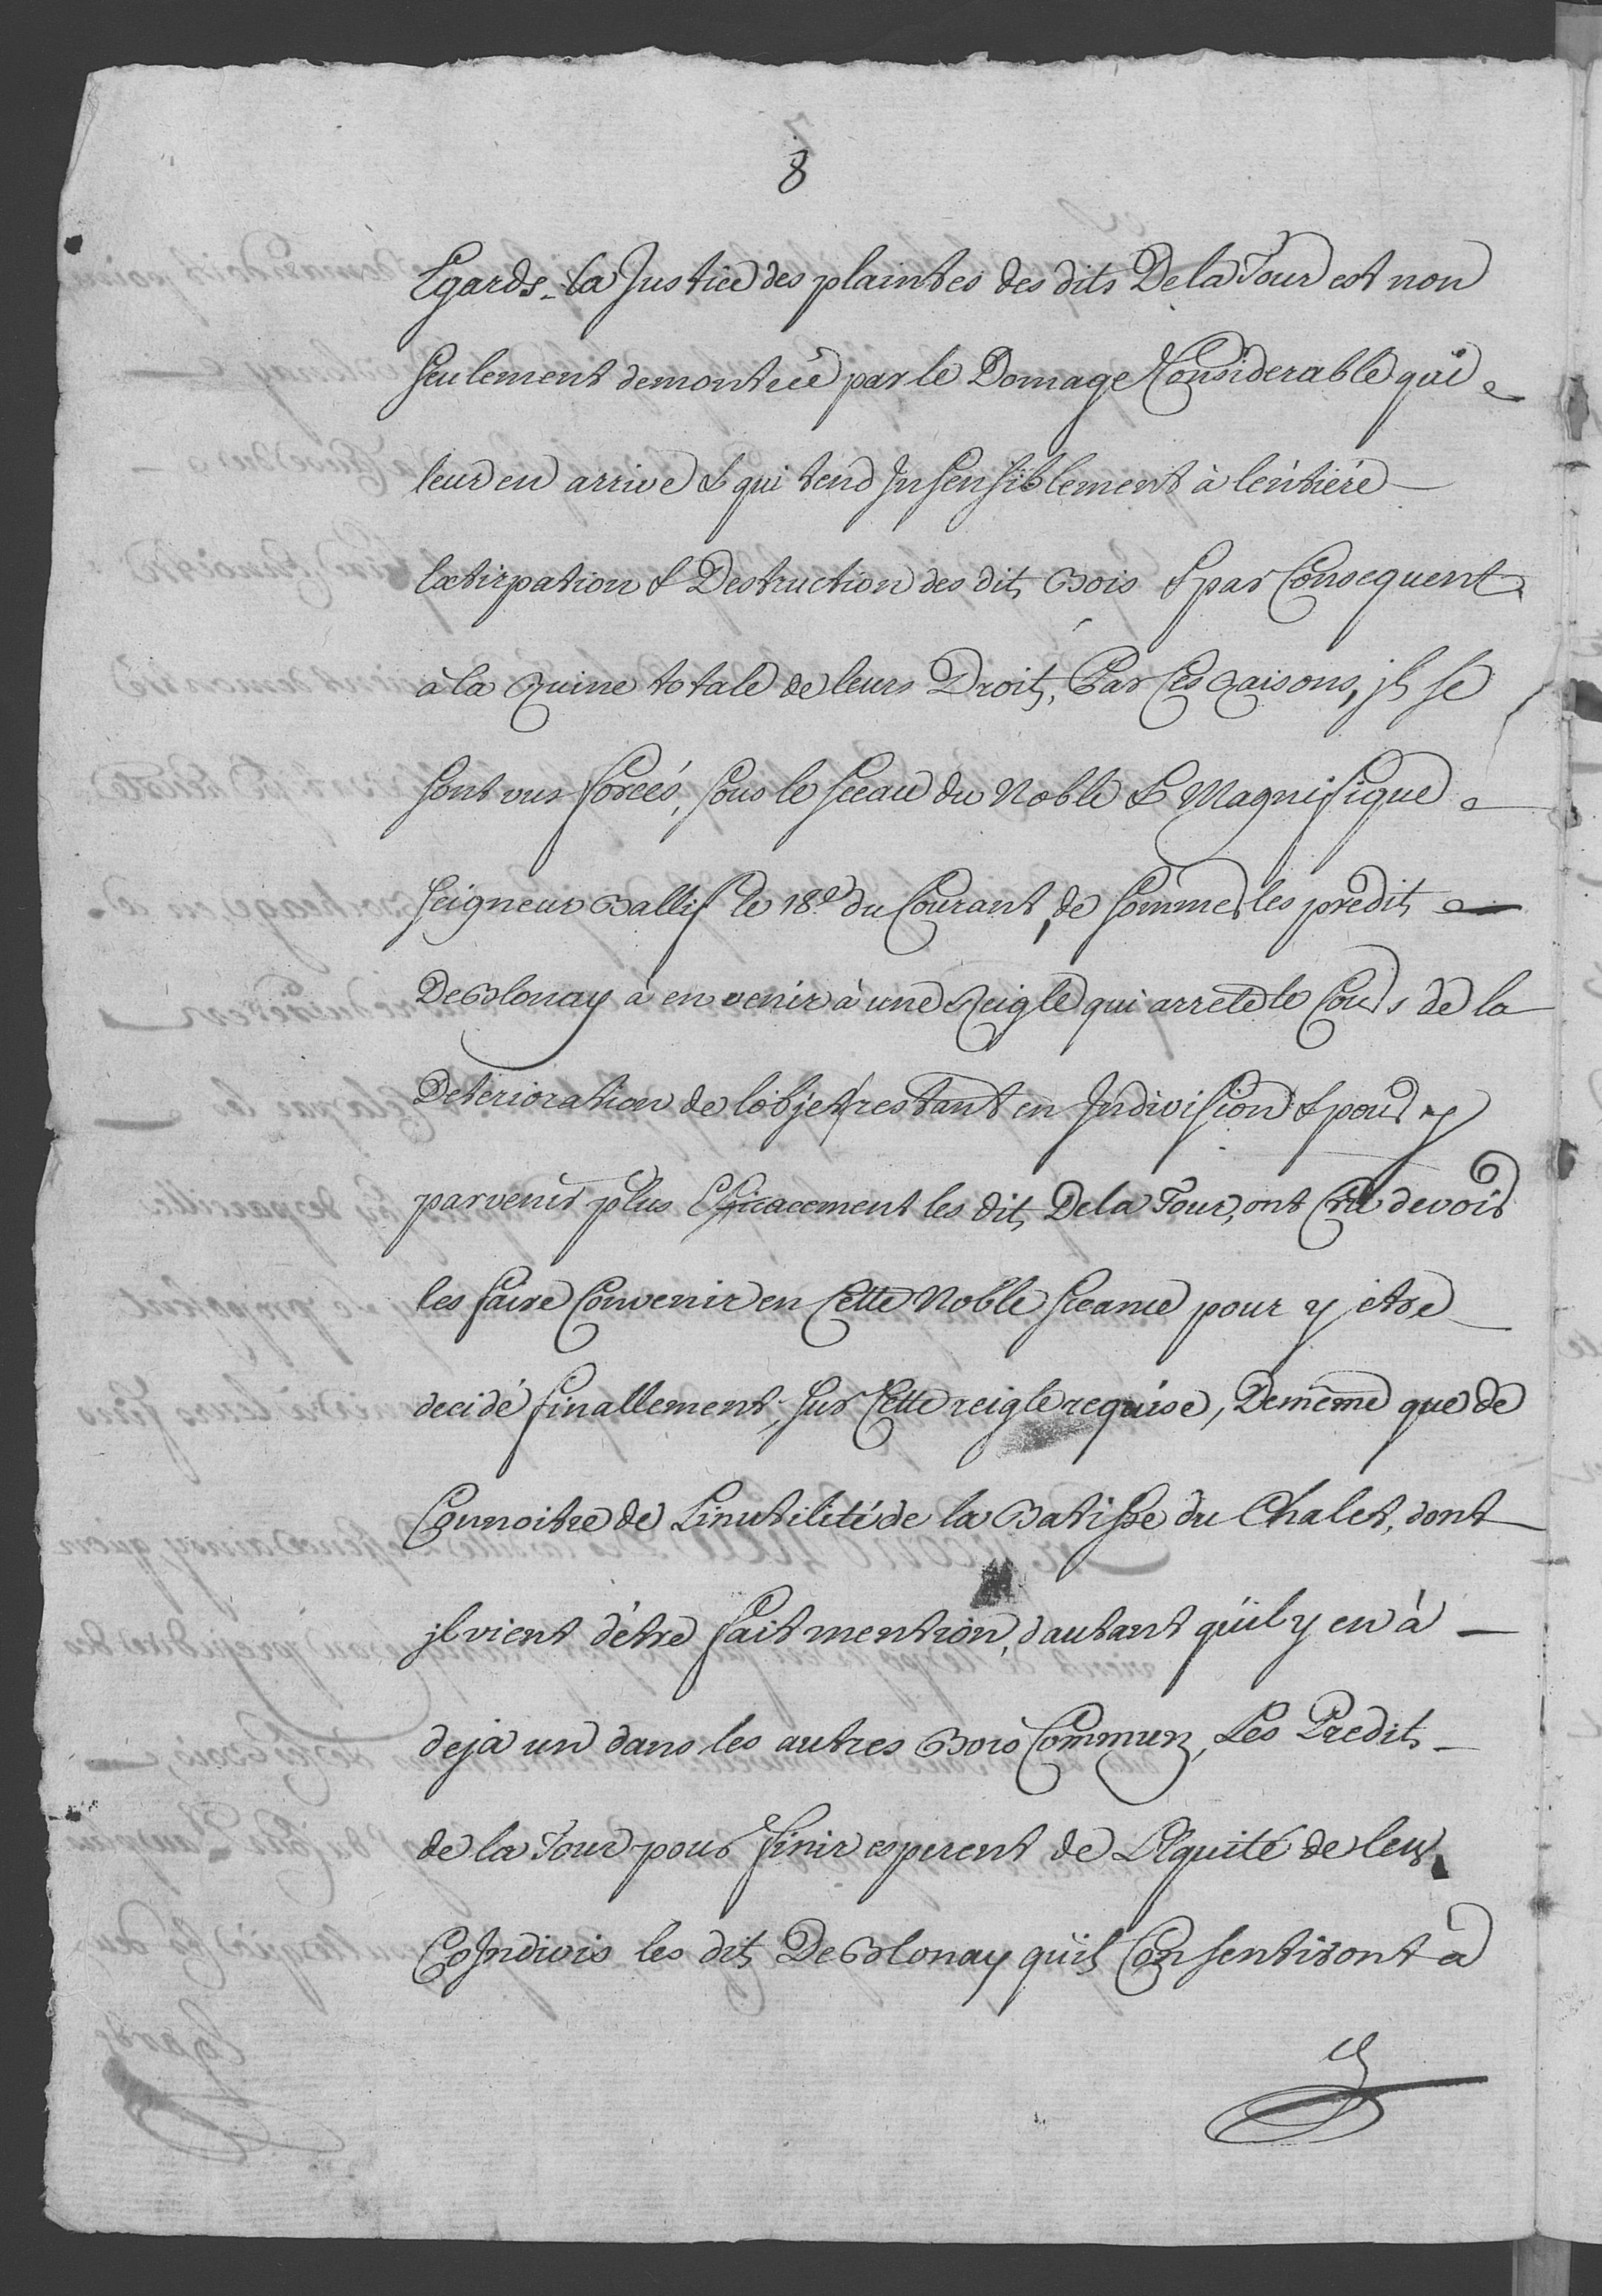 8
Egards. La Justice des plaintes des dits De la Tour est non
seulement demontreé par le Domage Considerable qui
leur en arrive & qui tend Insensiblement à léntiére
Extirpation & Destruction des dits Bois & par Consequent
à la Ruine totale de leurs Droits, Par Ces Raisons, jls se
sont vus forcés, sous le sceau du Noble & Magnifique
Seigneur Ballif le 18e. du Courant, de sommer les predits
De Blonay à en venir à une Reigle qui arrete le Cours de la
Deterioration de lobjet restant en Indivision & pour y
parvenir plus Efficacement les dits De la Tour, ont Cru devoir
les faire Convenir en Cette Noble sceance pour y etre
decidé finallement, sur Cette reigle requise, De même que de
Connoitre de Linutilité de la Batisse du Chalet, dont
jl vient d'étre fait mention, dautant qu'il y en à
deja un dans les autres Bois Commun, Les Predits
de la Tour pour finir esperent de LEquité de leur
CoIndivis les dits De Blonay quils Consentiront à